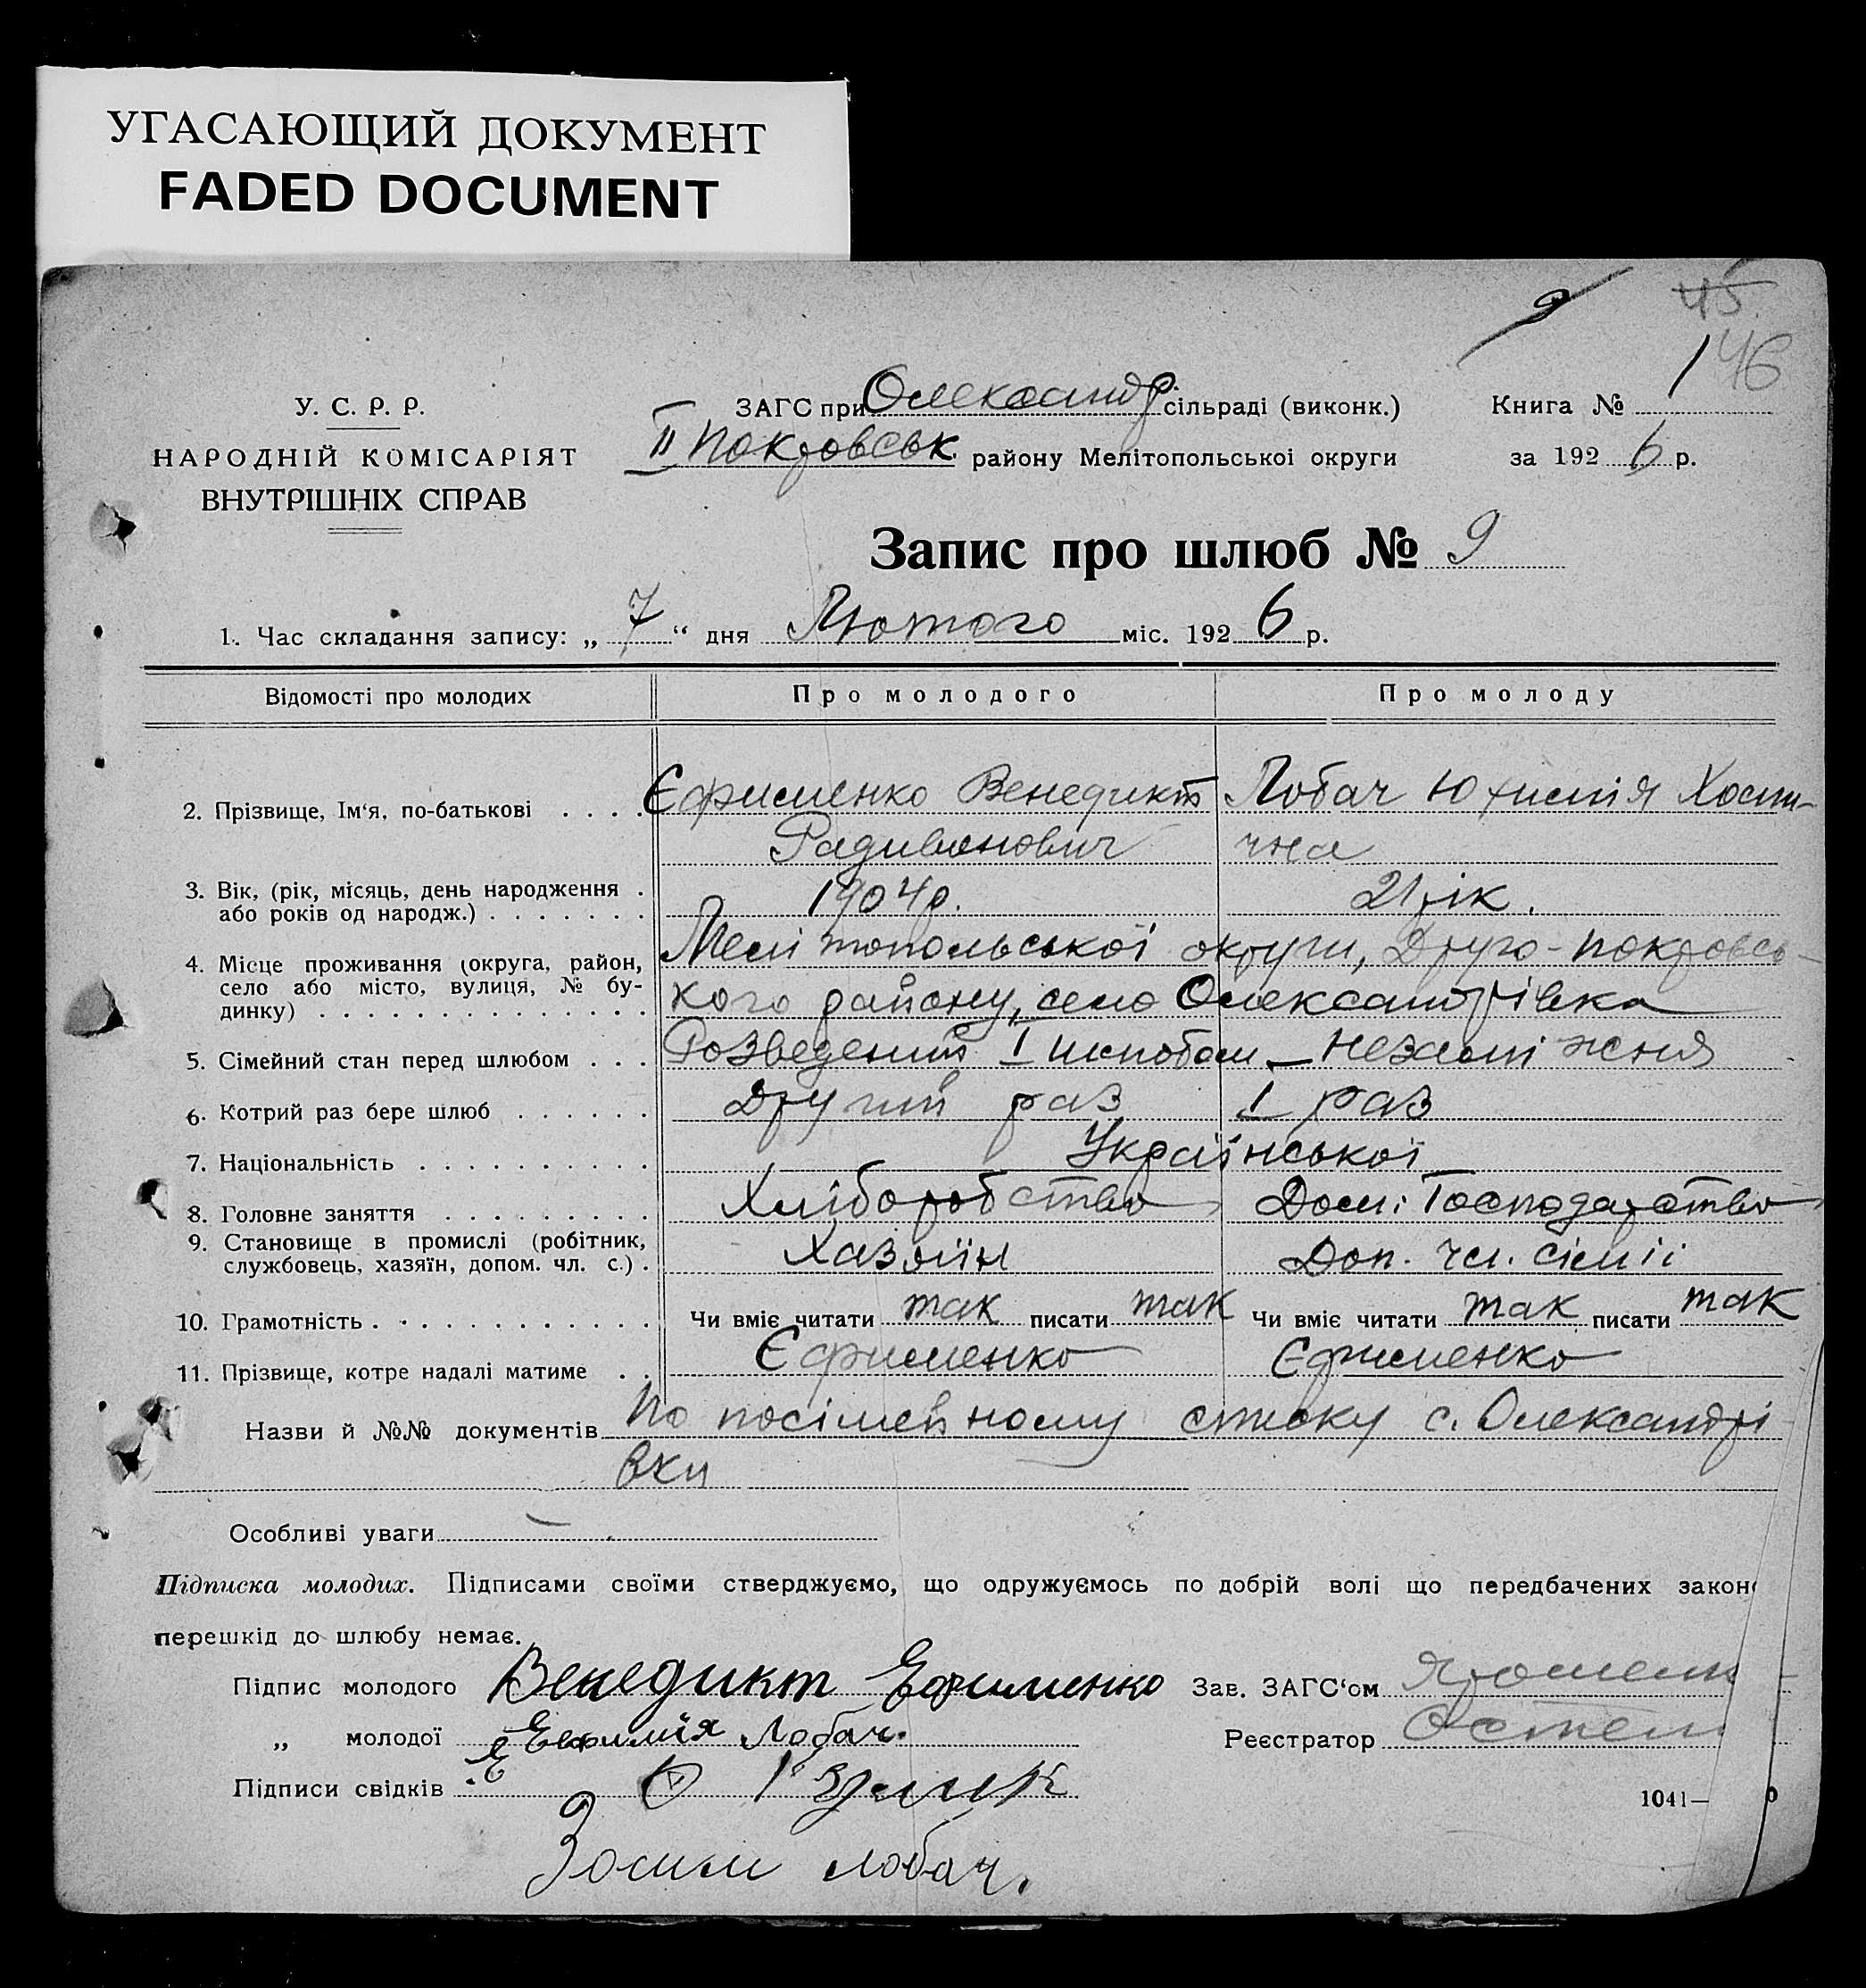 УГАСАЮЩИЙ ДОКУМЕНТ
FADED DOCUMENT
9
45
46
У. С. Р. Р.
НАРОДНІЙ КОМІСАРІЯТ
ВНУТРІШНІХ СПРАВ
ЗАГС при Олександр. сільраді (виконк.)
II Покровськ. району Мелітопольської округи
Книга № 1
за 1926 р.
Запис про шлюб № 9
1. Час складання запису: „7“ дня Лютого міс. 1926 р.
Відомості про молодих Про молодого Про молоду
2. Прізвище, Ім‘я, по-батькові . . . . Єфименко Венедикт Лобач Юхимія
Радивонович чна
3. Вік, (рік, місяць, день народження . або років од народж.) . . . . . . . 1904р. 21 рік.
4. Місце проживання (округа, район, село або місто, вулиця, № бу-динку) . . . . . . . . . . . . . . Мелітопольської округи, Друго-Покровсь-
кого району, село Олександрівка
5. Сімейний стан перед шлюбом . . . Розведений I шлюбом – Незаміжня
6. Котрий раз бере шлюб . . . . . . Другий раз I раз
7. Національність . . . . . . . . . . Української
8. Головне заняття . . . . . . . . . Хліборобство Дом: Господарство
9. Становище в промислі (робітник, службовець, хазяїн, допом. чл. с.) . Хазяїн Доп. чл. сімії
10. Грамотність . . . . . . . . . . . . Чи вміє читати так писати так Чи вміє читати так писати так
11. Прізвище, котре надалі матиме . . Єфименко Єфименко
Назви й №№ документів По посімейному списку с. Олександрі
вки
Особливі уваги —
Підписка молодих. Підписами своїми стверджуємо, що одружуємось по добрій волі що передбачених закон
перешкід до шлюбу немає.
Підпис молодого Венедикт Ефименко Зав. ЗАГС‘ом
„ молодої Евфимія Лобач. Реєстратор
Підписи свідків
1041—
Зосим Лобач.